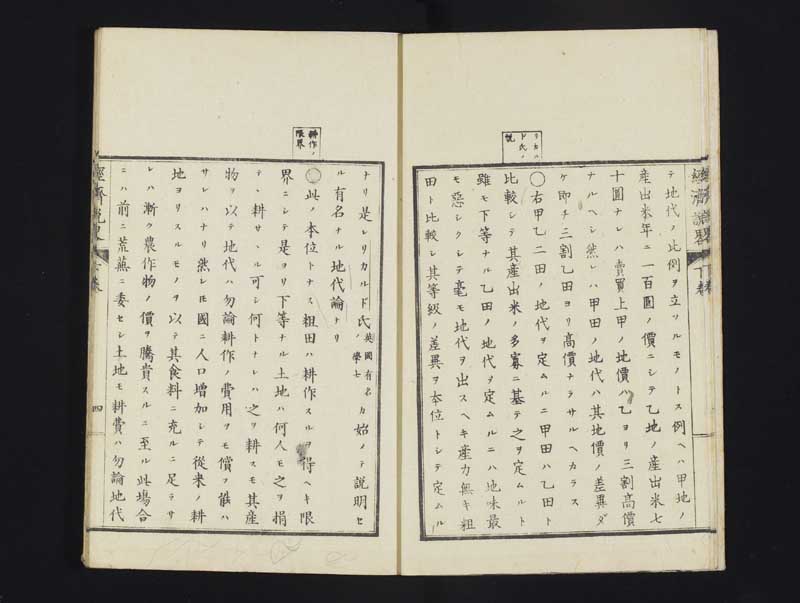 リカルド氏ノ説
テ地代ノ比例ヲ立ツルモノトス例ヘハ甲地ノ
産出米年ニ一百圓ノ價ニシテ乙地ノ産出米七
十圓ナレハ賣買上甲ノ地價ハ乙ヨリ三割高價
ナルヘシ然レハ甲田ノ地代ハ其地價ノ差異ダ
ケ即チ三割乙田ヨリ高價ナラサルヘカラス
○右甲乙二田ノ地代ヲ定ムルニ甲田ハ乙田ト
比較シテ其産出米ノ多寡ニ基テ之ヲ定ムルト
雖モ下等ナル乙田ノ地代ヲ定ムルニハ地味最
モ惡シクシテ毫モ地代ヲ出スヘキ産力無キ粗
田ト比較シ其等級ノ差異ヲ本位トシテ定ムル
耕作ノ限界
ナリ是レリカルド氏英國有名ノ學士カ始メテ説明セ
ル有名ナル地代論ナリ
○此ノ本位トナス粗田ハ耕作スルヲ得ヘキ限
界ニシテ是ヨリ下等ナル土地ハ何人モ之ヲ捐
テヽ耕サヽル可シ何トナレハ之ヲ耕スモ其産
物ヲ以テ地代ハ勿論耕作ノ費用ヲモ償フ能ハ
サレハナリ然レ𪜈國ニ人口増加シテ從來ノ耕
地ヨリスルモノヲ以テ其食料ニ充ルニ足ラサ
レハ漸ク農作物ノ價ヲ騰貴スルニ至ル此場合
ニハ前ニ荒蕪ニ委セシ土地モ耕費ハ勿論地代
四